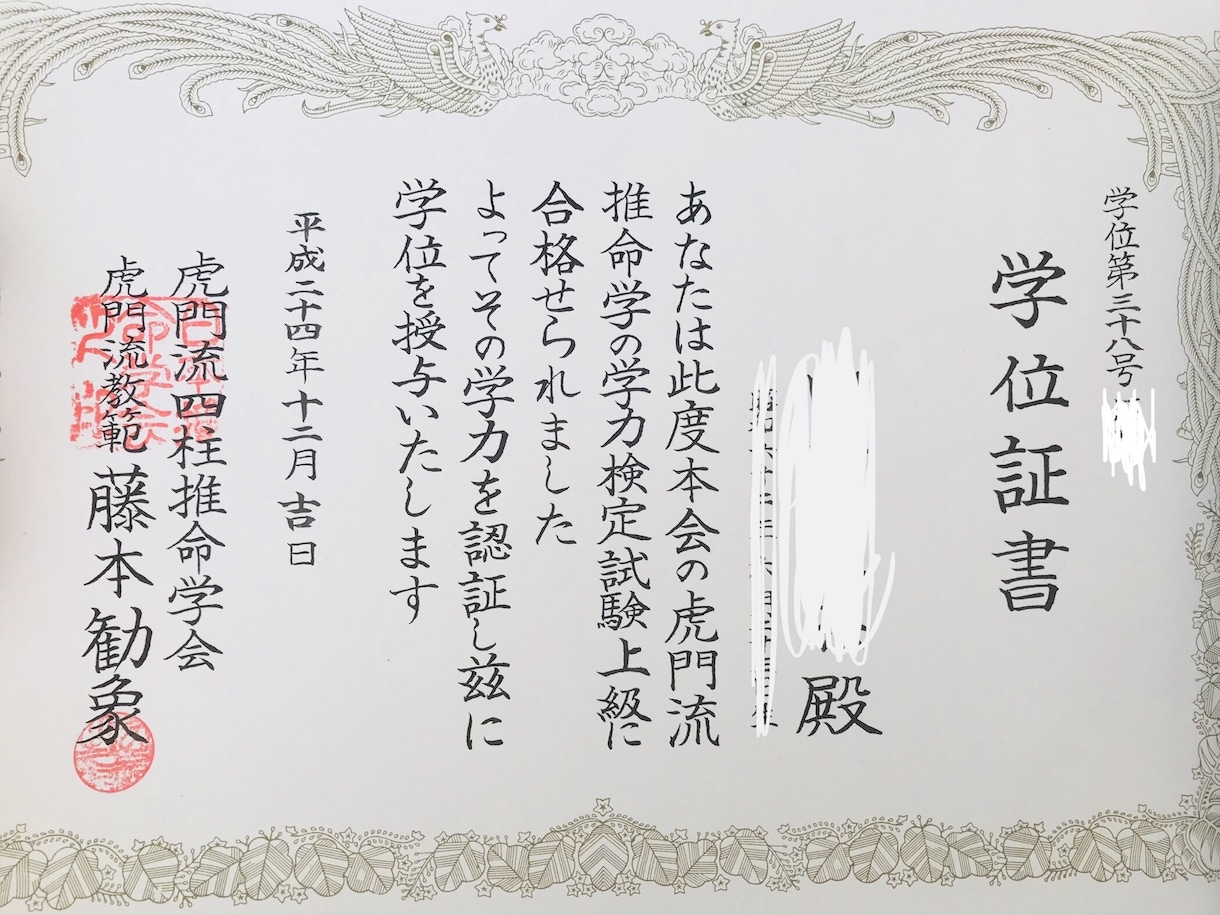 学位第三十八号
学位証書
殿
あなたは此度本会の虎門流
推命学の学力検定試験上級に
合格せられました
よってその学力を認証し茲に
学位を授与いたします
平成二十四年十二月吉日
虎門流四柱推命学会
虎門流教範 藤本勧象